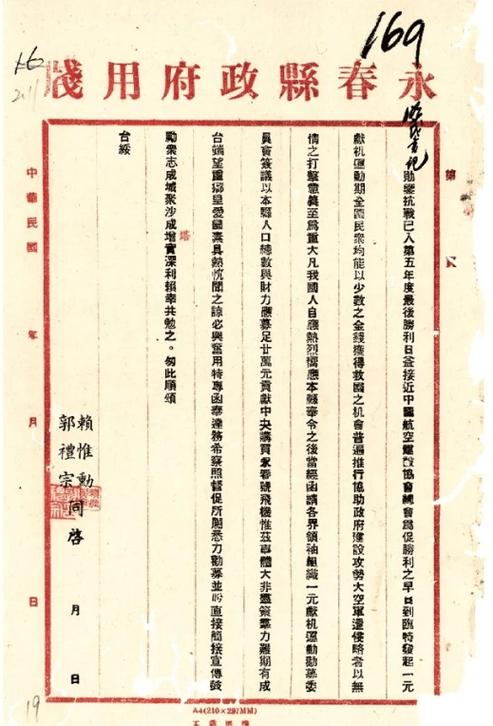 169
永春縣政府用牋
勛鑒抗戰已入第五年度最後勝利日益接近中國航空建設協會總會為促勝利之早日到臨特發起一元
獻机運動期全國民衆均能以少數之金錢獲得救國之机會普遍推行協助政府建設攻勢大空軍還侵略者以無
情之打擊意義至為重大凡我國人自應熱烈響應本縣奉令之後當經函請各界領袖組織一元獻机運動勸募委
員會簽議以本縣人口總數與財力應募足廿萬元貢獻中央購買永春號飛機惟茲事體大非羣策羣力難期有成
台端望重鄉里愛國素具熱忱聞之諒必興奮用特專函奉達務希察照督促所屬悉力勸募並盼直接簡接宣傳鼓
勵衆志成城聚沙成塔實深利賴幸共勉之。匆此順頌
台綏
賴惟勳
郭禮宗
同啓
月
日
中華民國
年
月
日
第
19
A4(210×297MM)